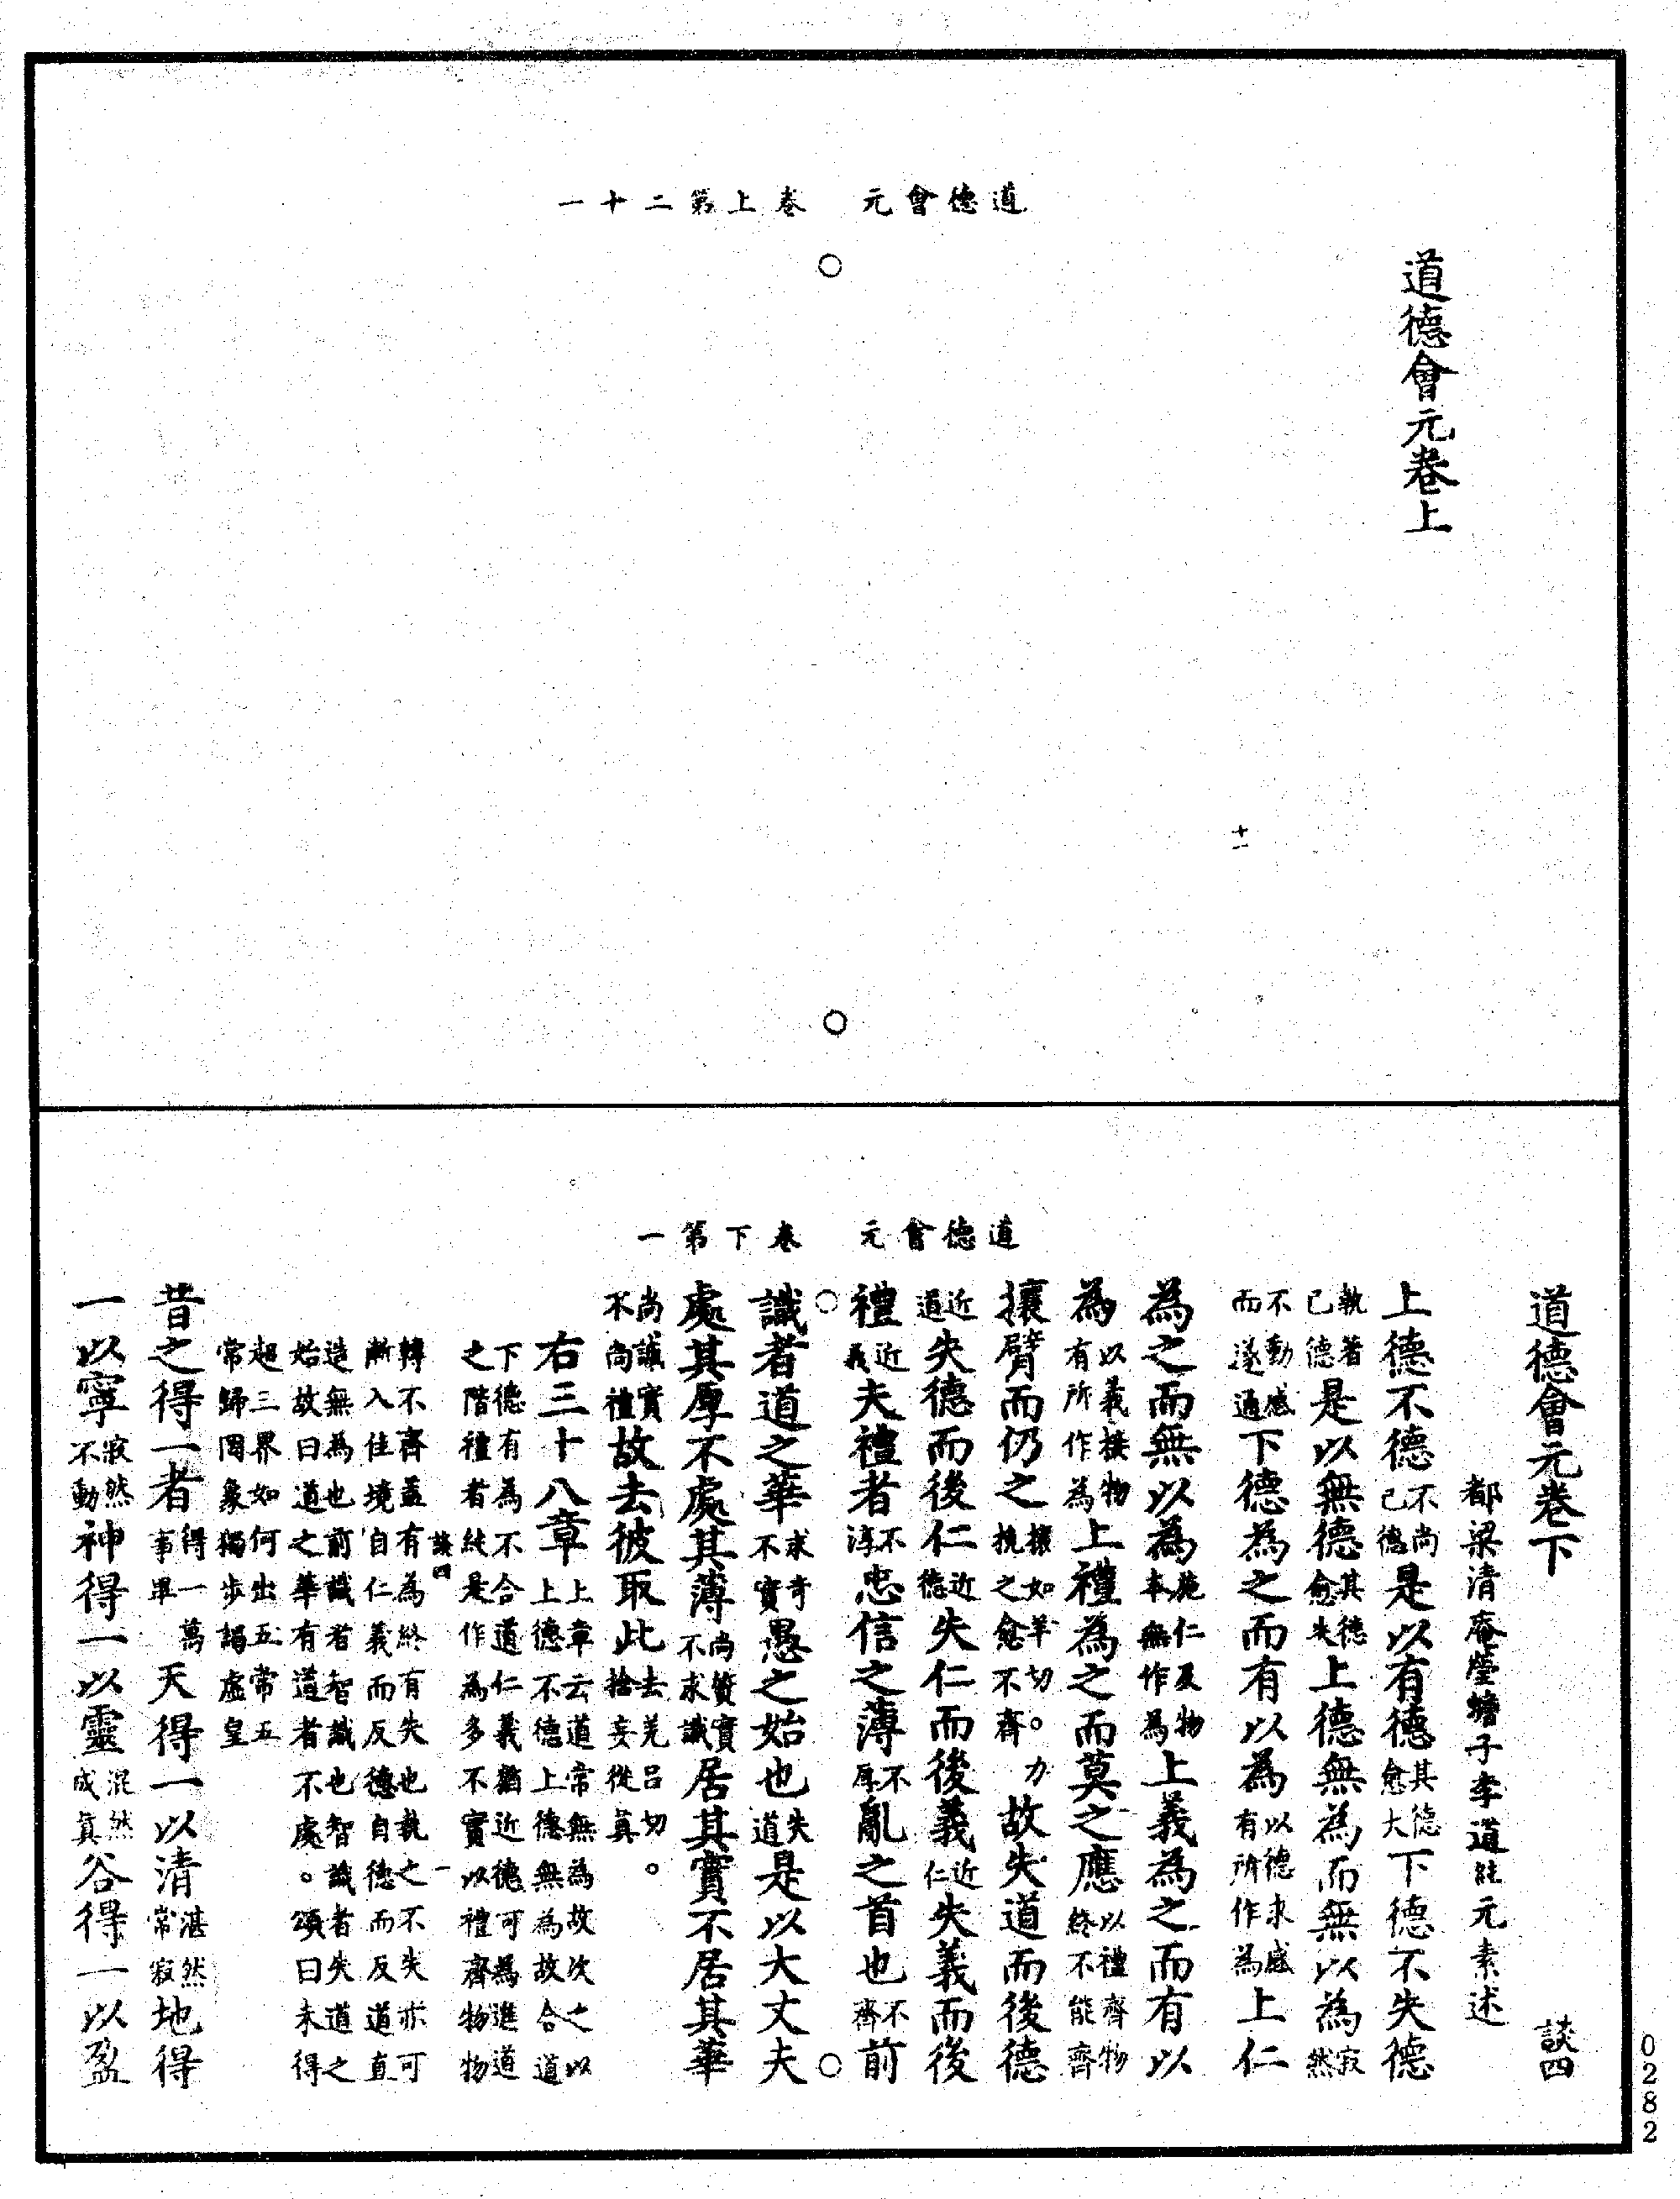 道德會元　卷上第二十一
道德會元卷上
十一
道德會元　卷下第一
道德會元卷下　談四
都梁清庵瑩蟾子李道純元素述
上德不德不尚己德是以有德其德愈大下德不失德
執著己德是以無德其德愈失上德無為而無以為寂然
不動感而遂通下德為之而有以為以德求感有所作為上仁
為之而無以為施仁及物本無作為上義為之而有以
為以義接物有所作為上禮為之而莫之應以禮齊物終不能齊
攘臂而仍之攘如羊切。力挽之愈不齊故失道而後德
近道失德而後仁近德失仁而後義近仁失義而後
禮近義夫禮者不淳忠信之薄不厚亂之首也不齊前
識者道之華求奇不實愚之始也失道是以大丈夫
處其厚不處其薄尚質實不求識居其實不居其華
尚誠實不尚禮故去彼取此去羌呂切。捨妄從真
右三十八章上章云道常無為故次之以上德不德上德無為故合道
下德有為不合道仁義猶近德可為進道之階禮者純是作為多不實以禮齊物物
談四　一
轉不齊蓋有為終有失也執之不失亦可漸入佳境自仁義而反德自德而反道直
造無為也前識者智識也智識者失道之始故曰道之華有道者不處。頌曰未得
超三界如何出五常五常歸罔象獨步謁虛皇
昔之得一者得一萬事畢天得一以清湛然常寂地得
一以寧寂然不動神得一以靈混然成真谷得一以盈
0282